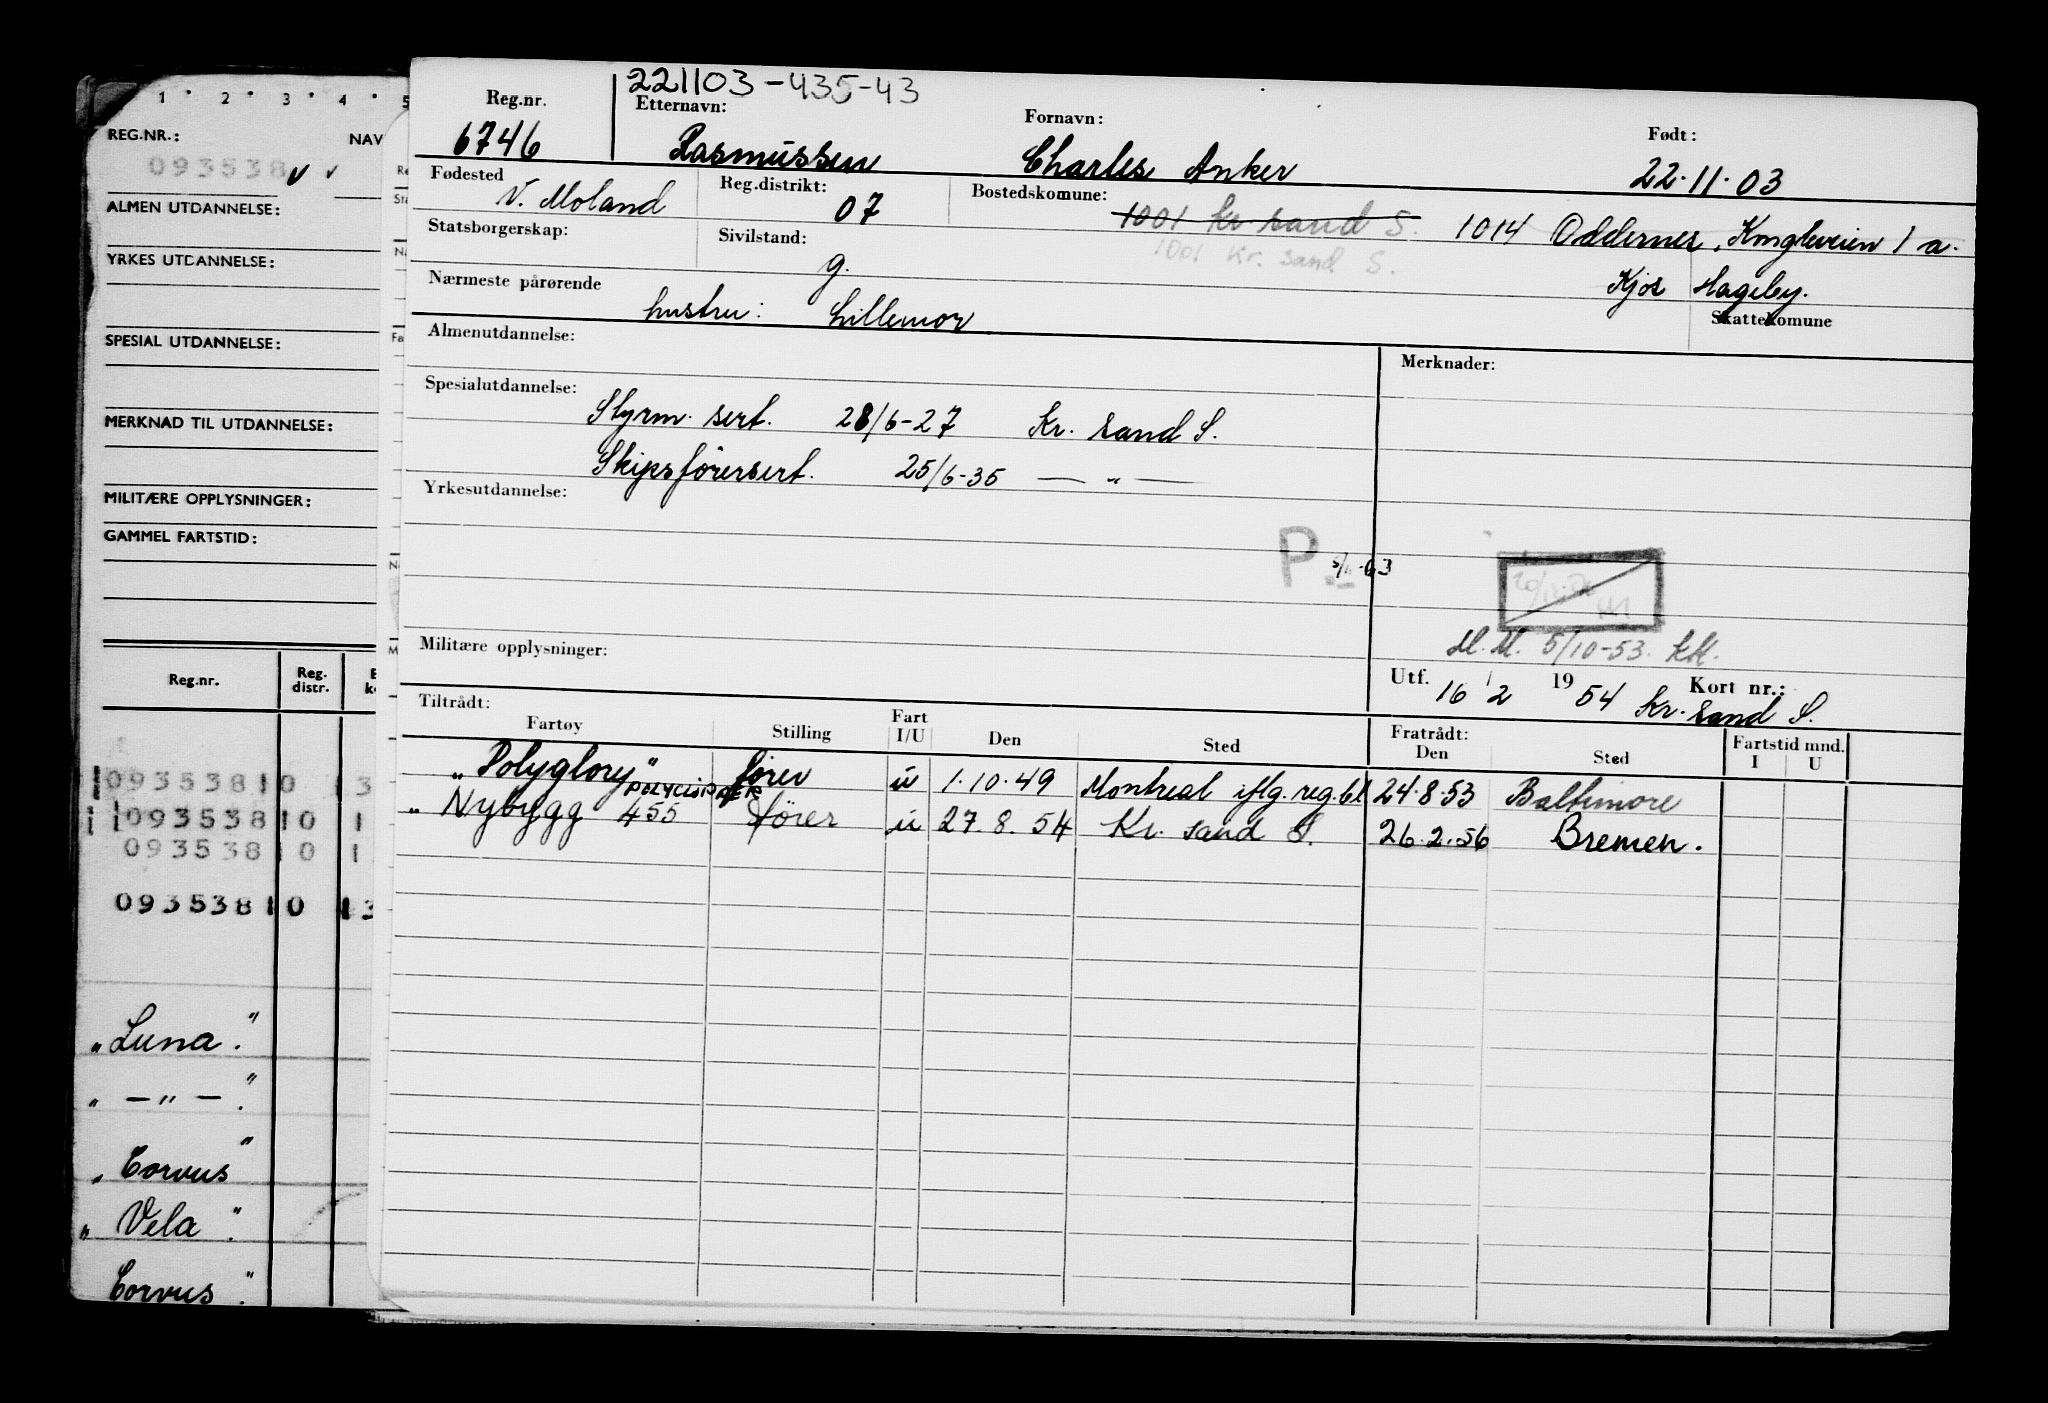 1 2 3 4 5
REG.NR.: NAV
093538
ALMEN UTDANNELSE:
YRKES UTDANNELSE:
SPESIAL UTDANNELSE:
MERKNAD TIL UTDANNELSE:
MILITÆRE OPPLYSNINGER:
GAMMEL FARTSTID:
Reg.nr. Reg. distr.
093538 10 13
093538 10 1
093538 10 1
093538 10 13
"Luna"
" — " — "
"Corvus"
"Vela"
Corvus"
221103-435-43
Reg.nr. Etternavn: Fornavn: Født:
6746 Rasmussen Charles Anker 22.11.03
Fødested Reg.distrikt: Bostedskomune:
V. Moland 07 1001 Kr. sand S. 1014 Oddernes, Kongleveien 1 a.
Statsborgerskap: Sivilstand: 1001 Kr. sand S.
g. Kjos Hageby.
Nærmeste pårørende
hustru: Lillemor Skattekomune
Almenutdannelse: Merknader:
Spesialutdannelse:
Styrm. sert. 28/6-27 Kr. sand S.
Skipsførersert. 25/6-35 — " —
Yrkesutdannelse:
P.
Militære opplysninger: M.M. 5/10-53. KK.
Utf. 16/2 1954 Kort nr.:
Kr. sand S.
Tiltrådt: Fratrådt:
Fartøy Stilling Fart I/U Den Sted Den Sted Fartstid mnd. I U
"Polyglory" fører u 1.10.49 Montreal iflg. reg.bl 24.8.53 Baltimore
" Nybygg 455 fører u 27.8.54 Kr. sand S. 26.2.56 Bremen.